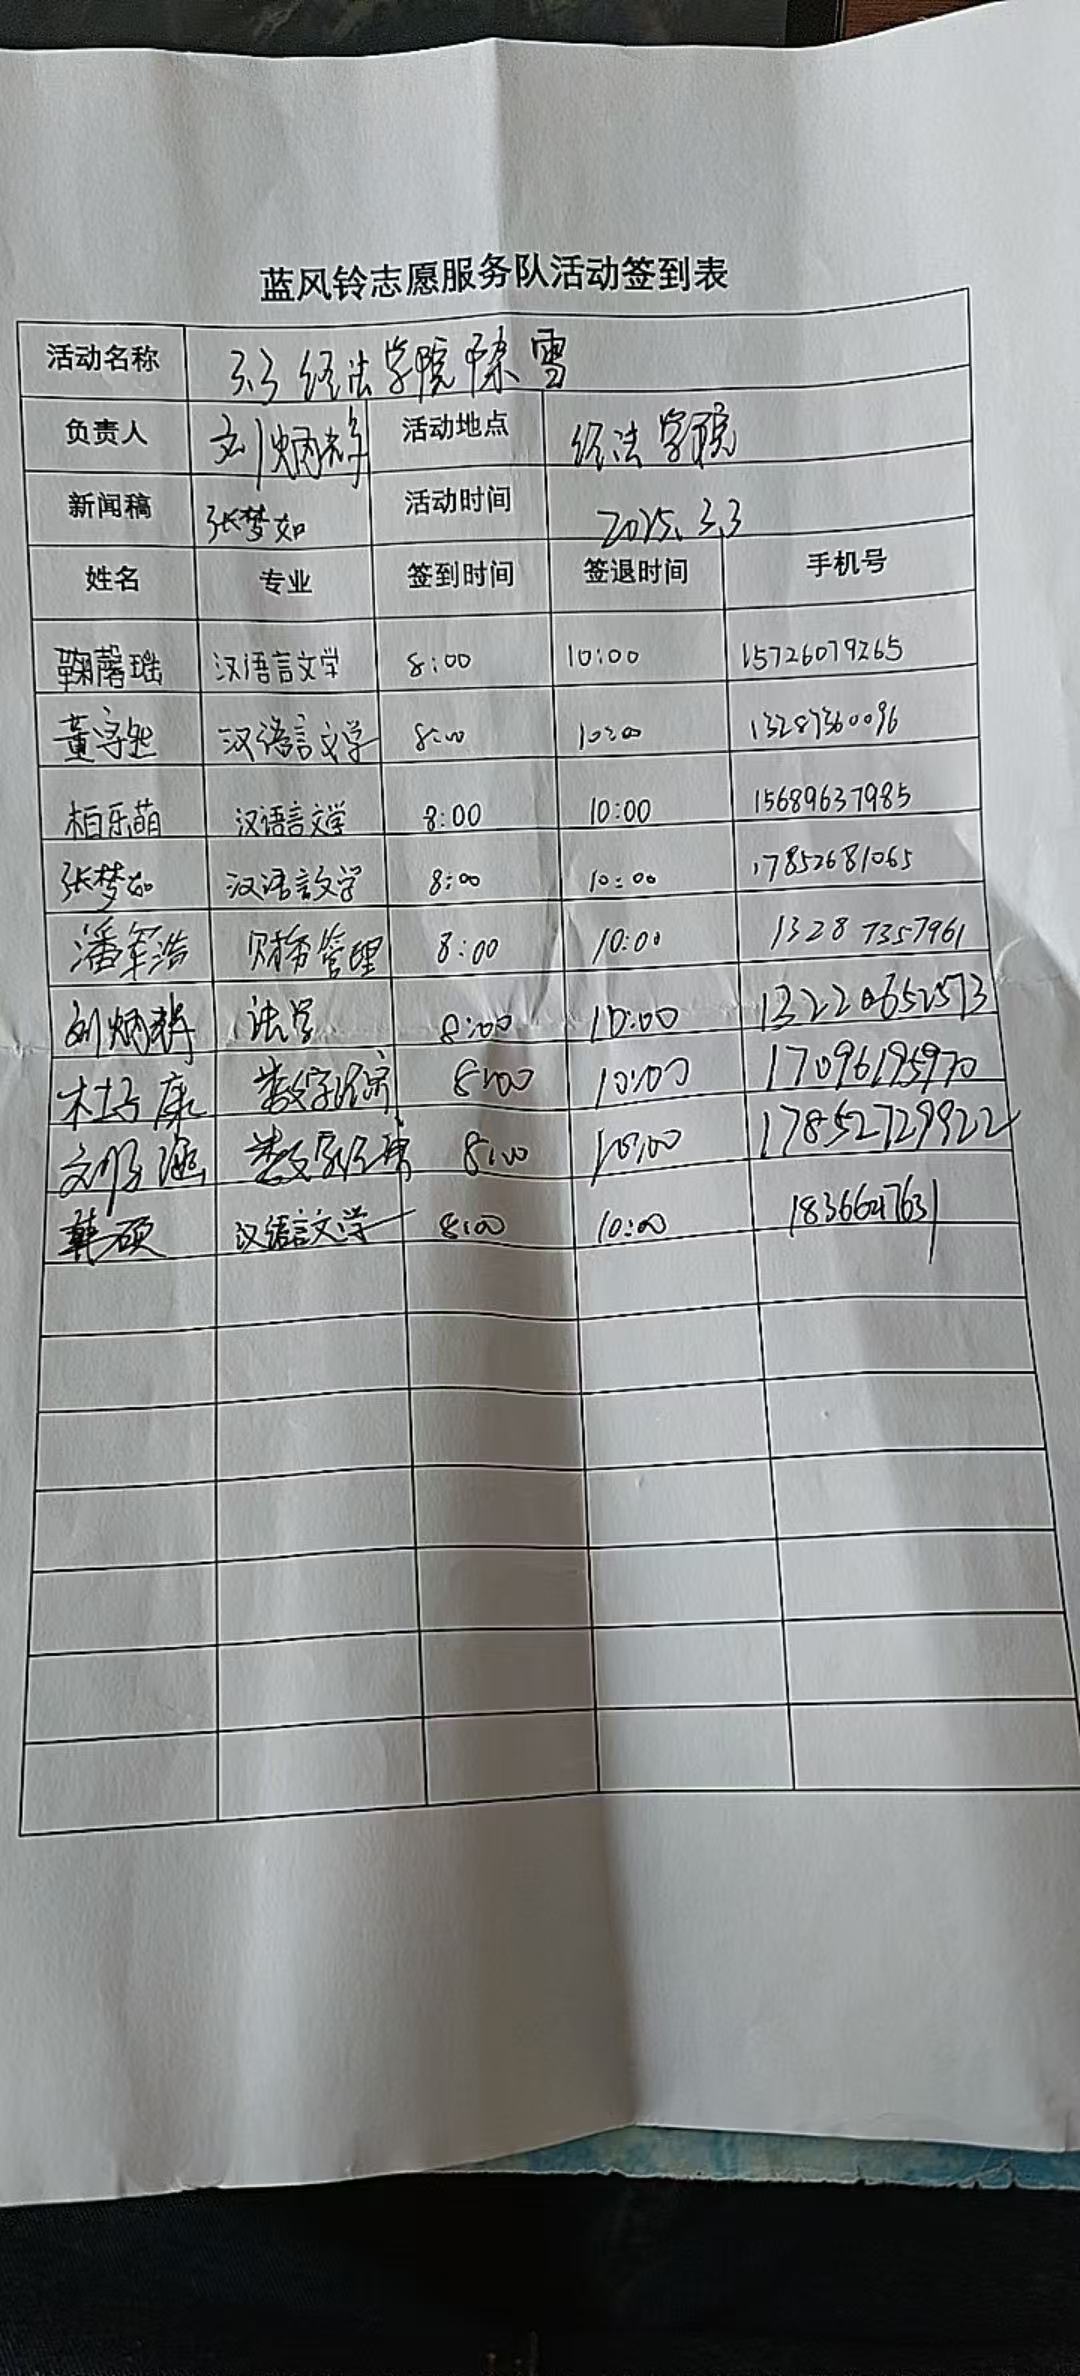 蓝风铃志愿服务队活动签到表
活动名称 3.3 经法学院除雪
负责人 刘炳静 活动地点 经法学院
新闻稿 张梦如 活动时间 2025.3.3
姓名 专业 签到时间 签退时间 手机号
鞠馨瑶 汉语言文学 8:00 10:00 15726079265
董 汉语言文学 8:00 10:00 13287360096
柏乐萌 汉语言文学 8:00 10:00 15689637985
张梦如 汉语言文学 8:00 10:00 17852681065
潘军浩 财务管理 8:00 10:00 13287357961
刘炳 法学 8:00 10:00 13220652573
杜 康 数字经济 8:00 10:00 17096195970
刘 涵 数字经济 8:00 10:00 17852729922
韩硕 汉语言文学 8:00 10:00